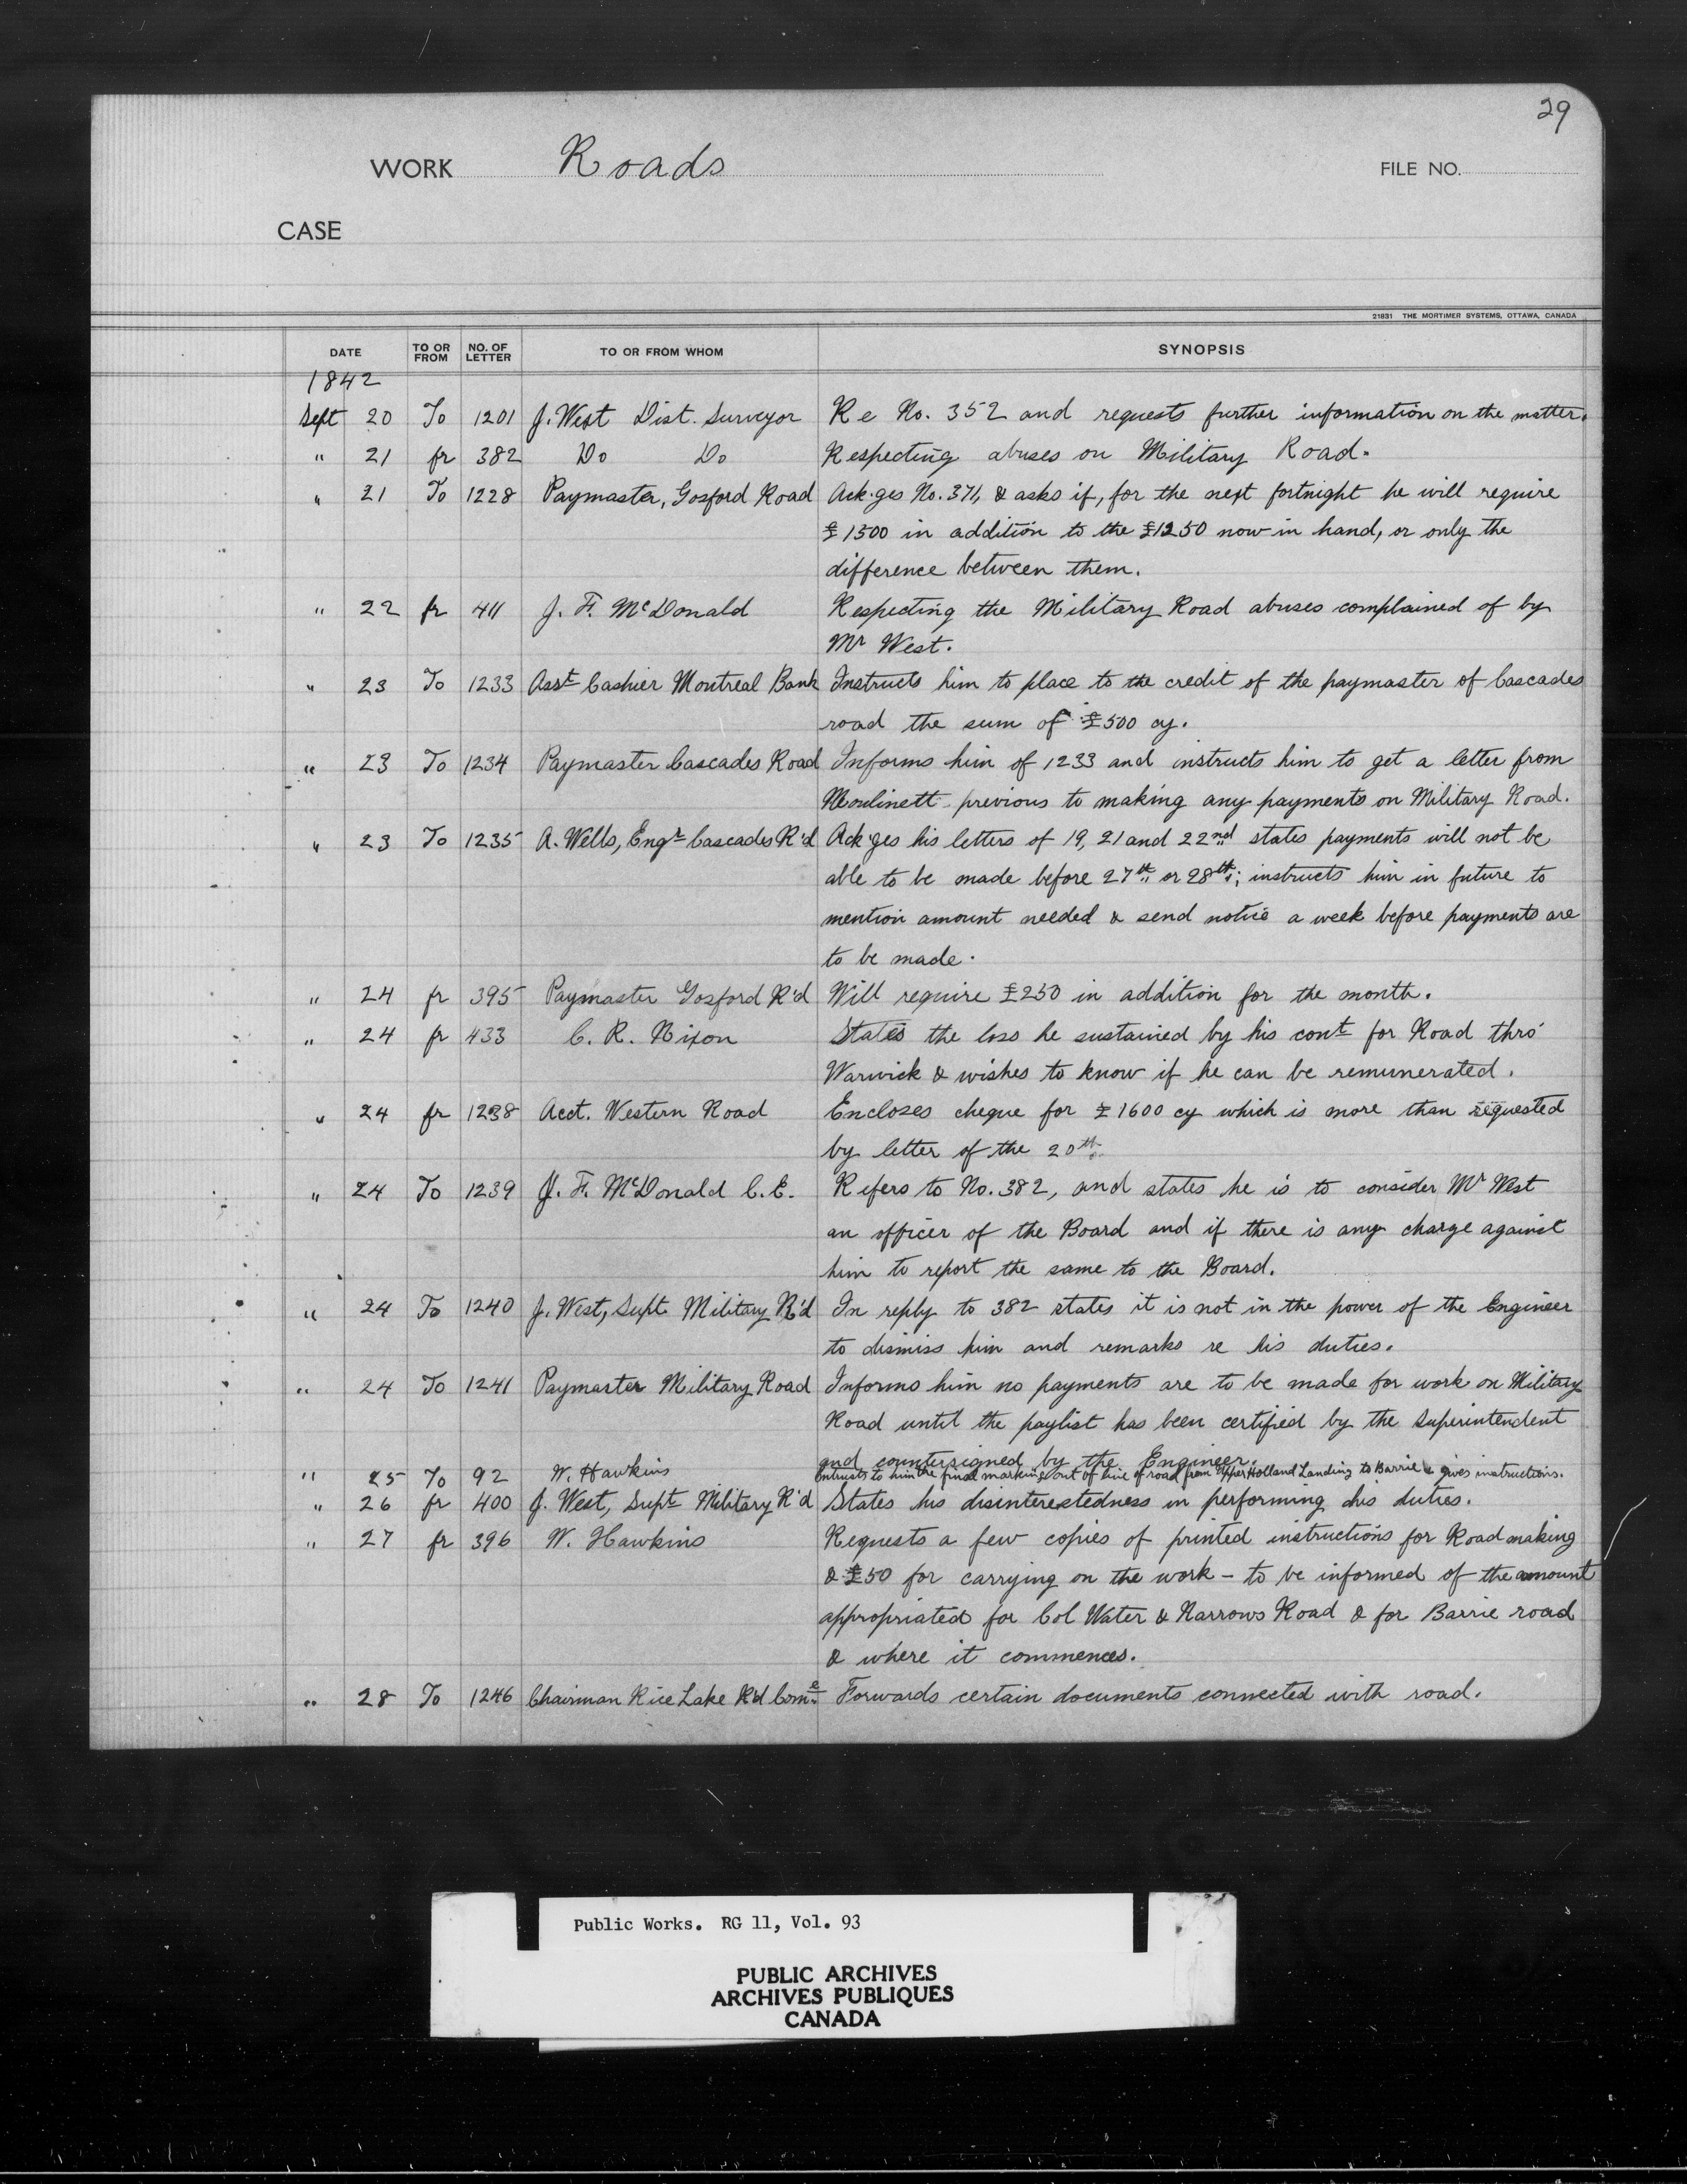 29
WORK Roads FILE NO.
CASE
21831 THE MORTIMER SYSTEMS, OTTAWA, CANADA
DATE TO OR FROM NO. OF LETTER TO OR FROM WHOM SYNOPSIS
1842
Sept 20 To 1201 J. West Dist. Surveyor Re No. 352 and requests further information on the matter.
" 21 fr 382 Do Do Respecting abuses on Military Road.
" 21 To 1228 Paymaster, Gosford Road Ack'ges No. 371, & asks if, for the next fortnight he will require
£1500 in addition to the £1250 now in hand, or only the
difference between them.
" 22 fr 411 J. F. McDonald Respecting the Military Road abuses complained of by
Mr West.
" 23 To 1233 Asst Cashier Montreal Bank Instructs him to place to the credit of the paymaster of Cascades
road the sum of £500 cy.
" 23 To 1234 Paymaster Cascades Road Informs him of 1233 and instructs him to get a letter from
Moulinett previous to making any payments on Military Road.
" 23 To 1235 A. Wells, Engr Cascades R'd Ack'ges his letters of 19, 21 and 22nd states payments will not be
able to be made before 27th or 28th; instructs him in future to
mention amount needed & send notice a week before payments are
to be made.
" 24 fr 395 Paymaster Gosford R'd Will require £250 in addition for the month.
" 24 fr 433 C. R. Nixon States the loss he sustained by his cont for Road thro'
Warwick & wishes to know if he can be remunerated.
" 24 fr 1238 Acct. Western Road Encloses cheque for £1600 cy which is more than requested
by letter of the 20th.
" 24 To 1239 J. F. McDonald C.E. Refers to No. 382, and states he is to consider Mr West
an officer of the Board and if there is any charge against
him to report the same to the Board.
" 24 To 1240 J. West, Supt Military R'd In reply to 382 states it is not in the power of the Engineer
to dismiss him and remarks re his duties.
" 24 To 1241 Paymaster Military Road Informs him no payments are to be made for work on Military
Road until the paylist has been certified by the Superintendent
and countersigned by the Engineer.
" 25 To 92 W. Hawkins Entrusts to him the final marking out of line of road from Upper Holland Landing to Barrie & gives instructions.
" 26 fr 400 J. West, Supt Military R'd States his disinterestedness in performing his duties.
" 27 fr 396 W. Hawkins Requests a few copies of printed instructions for Road making
& £50 for carrying on the work - to be informed of the amount
appropriated for Col Water & Narrows Road & for Barrie road
& where it commences.
" 28 To 1246 Chairman Rice Lake R'd Come Forwards certain documents connected with road.
Public Works. RG 11, Vol. 93
PUBLIC ARCHIVES
ARCHIVES PUBLIQUES
CANADA